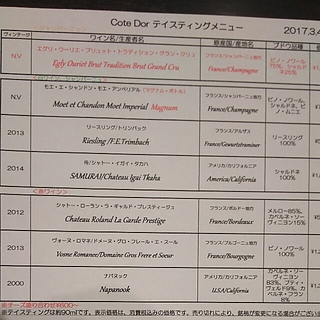 Cote Dor テイスティングメニュー
2017.3.4
ヴィンテージ
ワイン名/生産者名
原産国/産地名
ブドウ品種
エグリ・ウーリエ・ブリュット・トラディション・グラン・クリュ
N.V
Egly Ouriet Brut Tradition Brut Grand Cru
フランス/シャンパーニュ地方
France/Champagne
ピノ・ノワール75%、シャルドネ25%
モエ・エ・シャンドン・モエ・アンペリアル(マグナム・ボトル)
N.V
Moet et Chandon Moet Imperial Magnum
フランス/シャンパーニュ地方
France/Champagne
ピノ・ノワール、シャルドネ、ピノ・ムニエ
リースリング/トリンバック
2013
Riesling /F.E.Trimbach
フランス/アルザス
France/Gewurtztraminer
リースリング
100%
侍/シャトー・イガイ・タカハ
2014
SAMURAI/Chateau Igai Tkaha
アメリカ/カリフォルニア
America/California
シャルドネ
100%
<赤ワイン>
シャトー・ローラン・ラ・ギャルド・プレスティージュ
2012
Chateau Roland La Garde Prestige
フランス/ボルドー
France/Bordeaux
メルロー85%、カベルネ・ソーヴィニヨン15%
ヴォーヌ・ロマネ/ドメーヌ・グロ・フレール・エ・スール
2013
Vosne Romanee/Domaine Gros Frere et Soeur
フランス/ブルゴーニュ地方
France/Bourgogne
ピノ・ノワール
100%
ナパヌック
2000
Napanook
アメリカ/カリフォルニア
USA/California
カベルネ・ソーヴィニヨン83%、プティ・ヴェルド9%、カベルネ・フラン8%
※チーズ盛り合わせ¥600～
※テイスティングは約90mlです。表示価格は、消費税込みの価格です。売り切れにより、銘柄が変更になる場合がございます